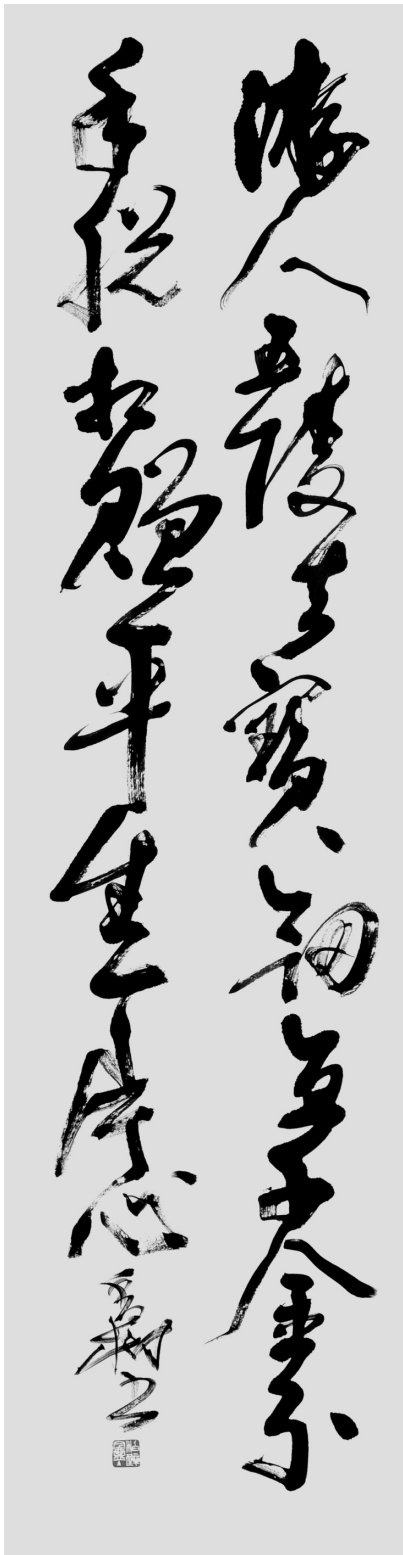 游人五陵去寶劍直千金分
手脱相贈平生一片心